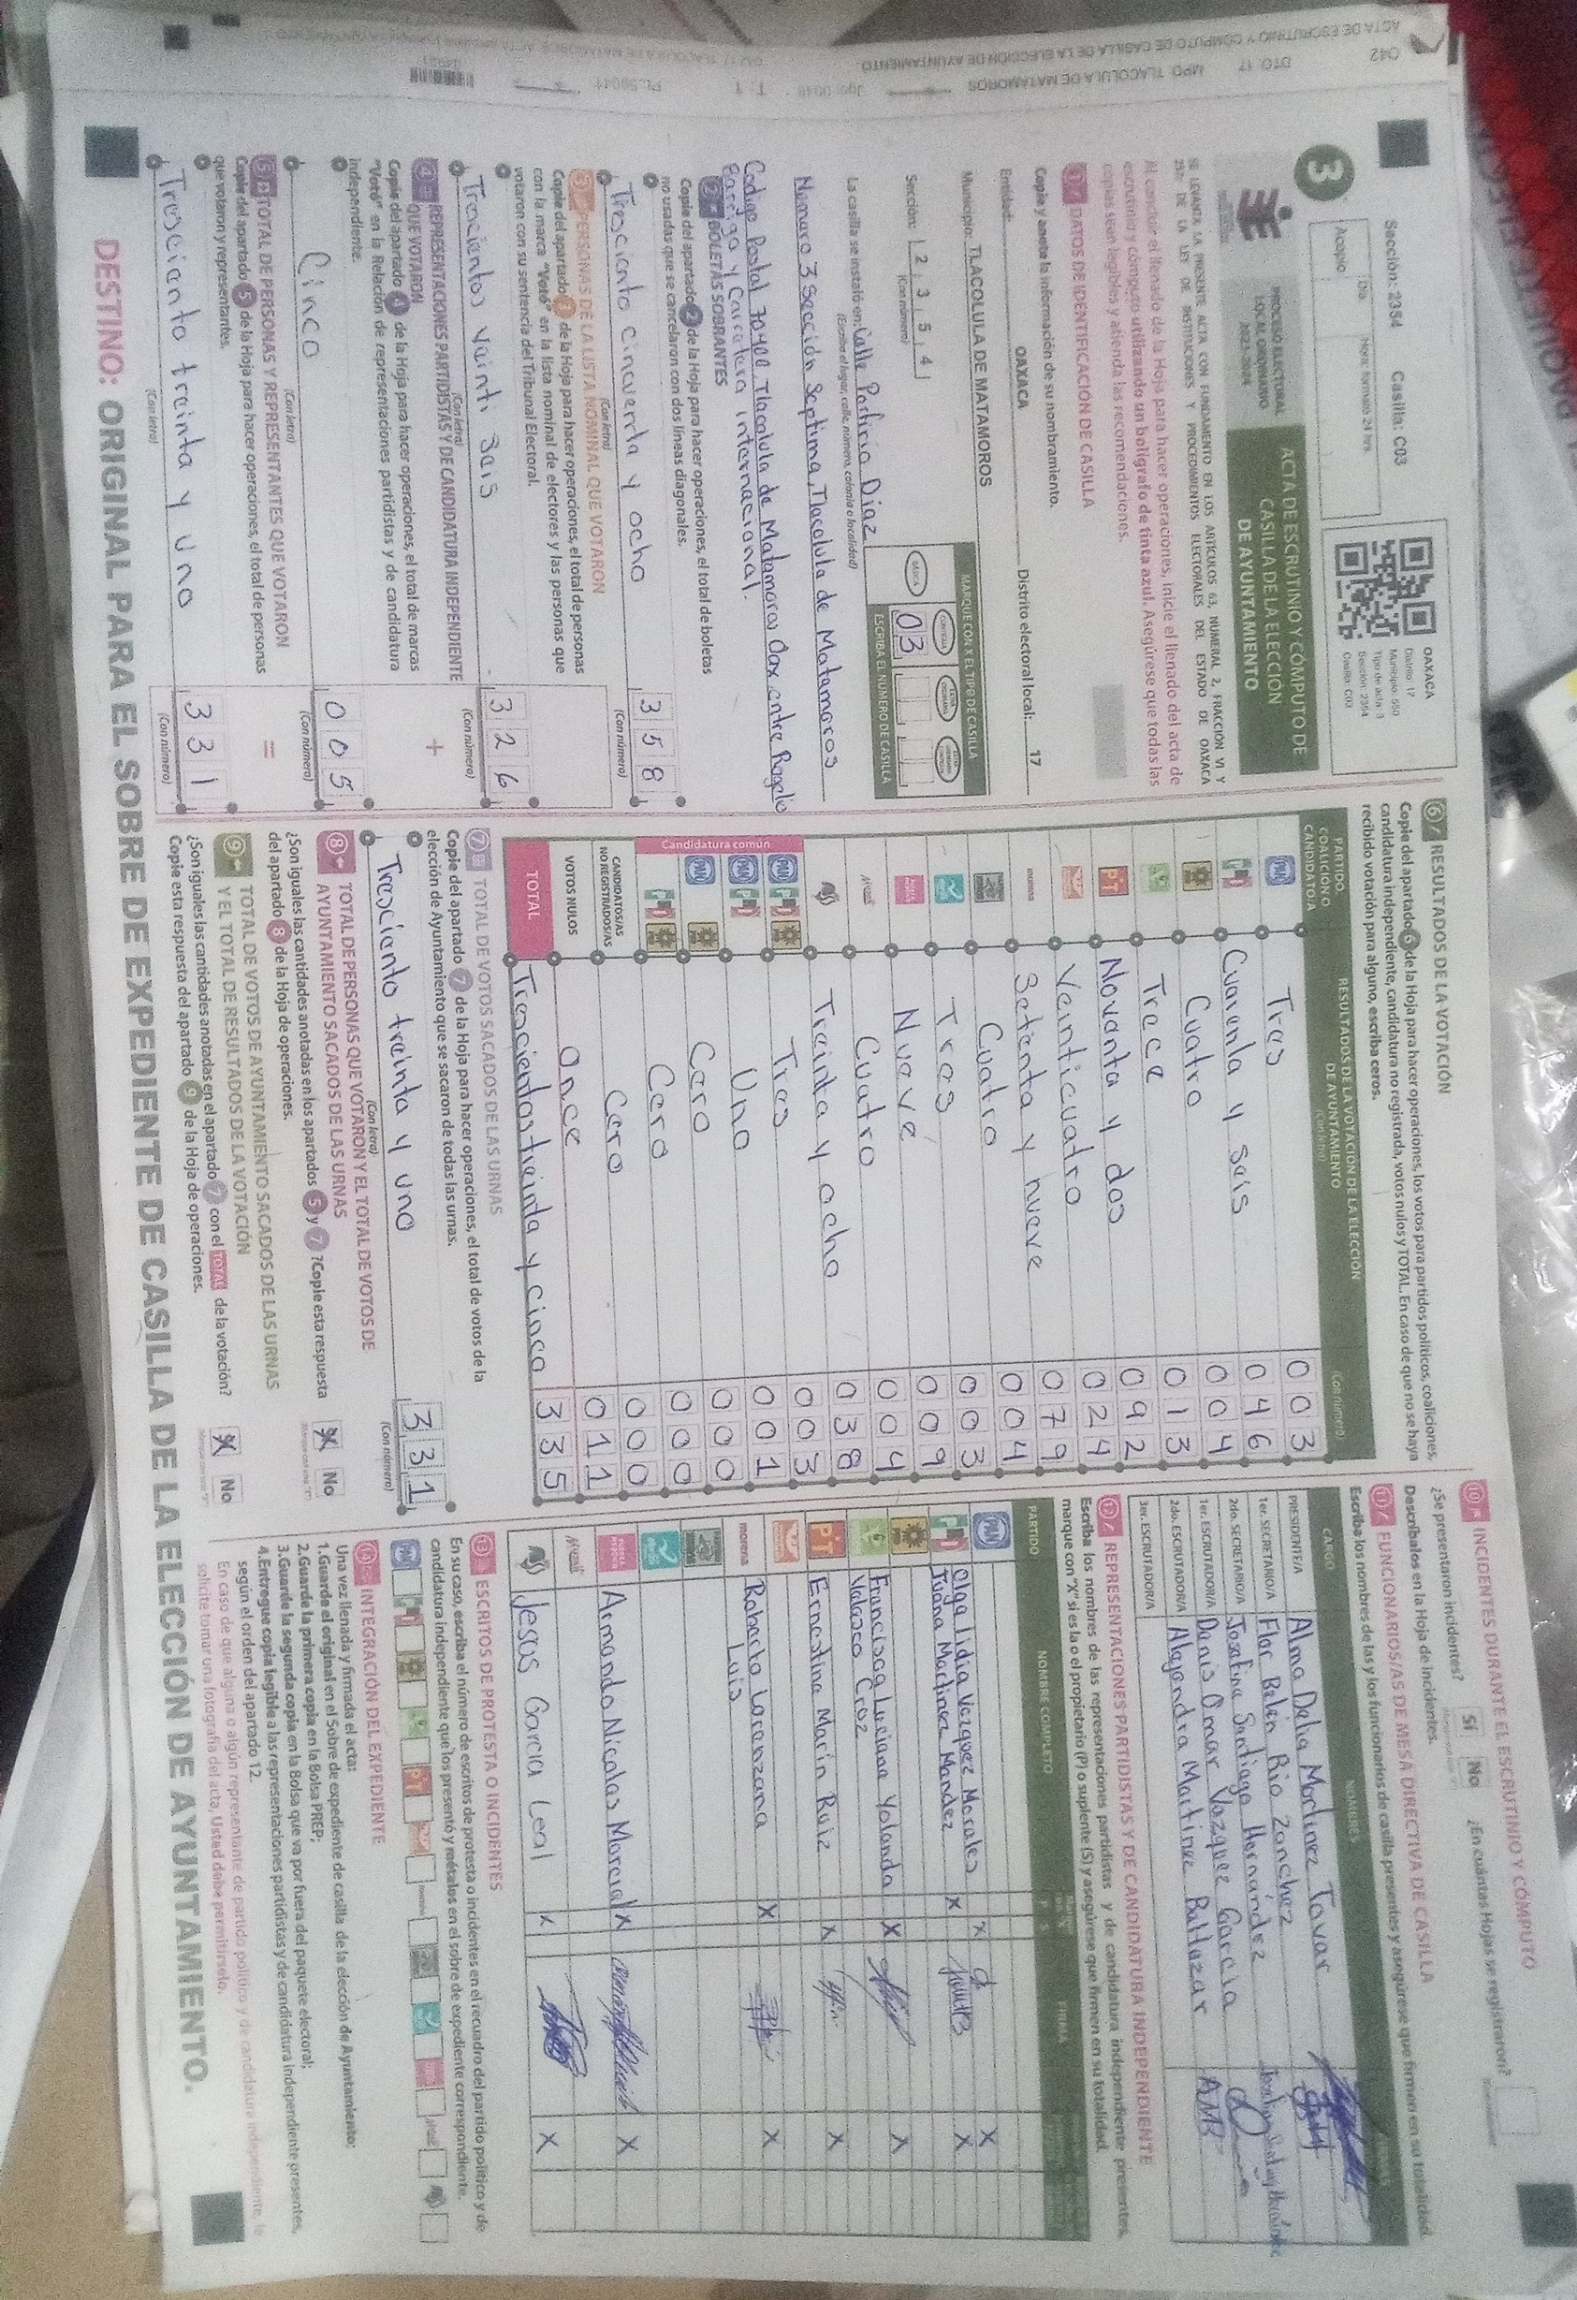 Sección: 2354 Casilla: C03
3
Acopio
Día
Hora: formato 24 hrs.
OAXACA
Distrito: 17
Municipio: 550
Tipo de acta: 3
Sección: 2354
Casilla: C03
PROCESO ELECTORAL
LOCAL ORDINARIO
2023-2024
ACTA DE ESCRUTINIO Y CÓMPUTO DE
CASILLA DE LA ELECCIÓN
DE AYUNTAMIENTO
SE LEVANTA LA PRESENTE ACTA CON FUNDAMENTO EN LOS ARTÍCULOS 63, NUMERAL 2, FRACCIÓN VI Y
DE LA LEY DE INSTITUCIONES Y PROCEDIMIENTOS ELECTORALES DEL ESTADO DE OAXACA
Al concluir el llenado de la Hoja para hacer operaciones, inicie el llenado del acta de
escrutinio y cómputo utilizando un bolígrafo de tinta azul. Asegúrese que todas las
copias sean legibles y atienda las recomendaciones.
1 DATOS DE IDENTIFICACIÓN DE CASILLA
Copie y anote la información de su nombramiento.
Entidad: OAXACA Distrito electoral local: 17
Municipio: TLACOLULA DE MATAMOROS
MARQUE CON X EL TIPO DE CASILLA
Sección: 2 3 5 4
(Con número)
BÁSICA
03
ESCRIBA EL NÚMERO DE CASILLA
La casilla se instaló en: Calle Porfirio Diaz
(Escriba el lugar, calle, número, colonia o localidad)
Numero 3 Sección Septima, Tlacolula de Matamoros
Codigo Postal 70400 Tlacolula de Matamoros Oax entre Rogelio
Barriga y Carretera internacional.
2 BOLETAS SOBRANTES
Copie del apartado 2 de la Hoja para hacer operaciones, el total de boletas
no usadas que se cancelaron con dos líneas diagonales.
Tresciento cincuenta y ocho 3 5 8
(Con letra) (Con número)
3 PERSONAS DE LA LISTA NOMINAL QUE VOTARON
Copie del apartado 3 de la Hoja para hacer operaciones, el total de personas
con la marca "Votó" en la lista nominal de electores y las personas que
votaron con su sentencia del Tribunal Electoral.
Trecientos veinti seis 3 2 6
(Con letra) (Con número)
4 REPRESENTACIONES PARTIDISTAS Y DE CANDIDATURA INDEPENDIENTE
QUE VOTARON +
Copie del apartado 4 de la Hoja para hacer operaciones, el total de marcas
"Votó" en la Relación de representaciones partidistas y de candidatura
independiente.
Cinco 0 0 5
(Con letra) (Con número)
5 TOTAL DE PERSONAS Y REPRESENTANTES QUE VOTARON =
Copie del apartado 5 de la Hoja para hacer operaciones, el total de personas
que votaron y representantes.
Tresciento treinta y uno 3 3 1
(Con letra) (Con número)
6 RESULTADOS DE LA VOTACIÓN
Copie del apartado 6 de la Hoja para hacer operaciones, los votos para partidos políticos, coaliciones,
candidatura independiente, candidatura no registrada, votos nulos y TOTAL. En caso de que no se haya
recibido votación para alguno, escriba ceros.
PARTIDO,
COALICIÓN O
CANDIDATO/A
RESULTADOS DE LA VOTACIÓN DE LA ELECCIÓN
DE AYUNTAMIENTO
(Con letra)
(Con número)
PAN Tres 0 0 3
PRI Cuarenta y seis 0 4 6
Cuatro 0 0 4
Trece 0 1 3
PT Novanta y dos 0 9 2
Veinticuatro 0 2 4
morena Setenta y nueve 0 7 9
Cuatro 0 0 4
Tres 0 0 3
Nueve 0 0 9
Cuatro 0 0 4
Treinta y ocho 0 3 8
Candidatura común
PAN PRI Tres 0 0 3
PAN PRI Uno 0 0 1
PAN Cero 0 0 0
PRI Cero 0 0 0
CANDIDATOS/AS
NO REGISTRADOS/AS Cero 0 0 0
VOTOS NULOS Once 0 1 1
TOTAL Trescientos treinta y cinco 3 3 5
7 TOTAL DE VOTOS SACADOS DE LAS URNAS
Copie del apartado 7 de la Hoja para hacer operaciones, el total de votos de la
elección de Ayuntamiento que se sacaron de todas las urnas.
Tresciento treinta y uno 3 3 1
(Con letra) (Con número)
8 TOTAL DE PERSONAS QUE VOTARON Y EL TOTAL DE VOTOS DE
AYUNTAMIENTO SACADOS DE LAS URNAS
¿Son iguales las cantidades anotadas en los apartados 5 y 7 ? Copie esta respuesta
del apartado 8 de la Hoja de operaciones.
No
9 TOTAL DE VOTOS DE AYUNTAMIENTO SACADOS DE LAS URNAS
Y EL TOTAL DE RESULTADOS DE LA VOTACIÓN
¿Son iguales las cantidades anotadas en el apartado 7 con el TOTAL de la votación?
Copie esta respuesta del apartado 9 de la Hoja de operaciones.
No
10 INCIDENTES DURANTE EL ESCRUTINIO Y CÓMPUTO
¿Se presentaron incidentes? Sí No ¿En cuántas Hojas se registraron?
Descríbalos en la Hoja de incidentes.
11 FUNCIONARIOS/AS DE MESA DIRECTIVA DE CASILLA
Escriba los nombres de las y los funcionarios de casilla presentes y asegúrese que firmen en su totalidad.
CARGO NOMBRES
PRESIDENTE/A Alma Delia Martinez Tovar
1er. SECRETARIO/A Flor Belen Rio Zanchez
2do. SECRETARIO/A Josefina Santiago Hernández
1er. ESCRUTADOR/A Denis Omar Vazquez Garcia
2do. ESCRUTADOR/A Alejandra Martinez Baltazar AMB
3er. ESCRUTADOR/A
12 REPRESENTACIONES PARTIDISTAS Y DE CANDIDATURA INDEPENDIENTE
Escriba los nombres de las representaciones partidistas y de candidatura independiente presentes,
marque con "X" si es la o el propietario (P) o suplente (S) y asegúrese que firmen en su totalidad.
PARTIDO NOMBRE COMPLETO P S FIRMA
PAN Olga Lidia Vazquez Morales X X
PRI Juana Martinez Mendez X X
Francisca Luciana Yolanda X X
Velasco Cruz
PT Ernestina Marin Ruiz X X
morena Roberto Lorenzana X X
Luis
Armando Nicolas Marcial X X
Jesus Garcia Leal X X
13 ESCRITOS DE PROTESTA O INCIDENTES
En su caso, escriba el número de escritos de protesta o incidentes en el recuadro del partido político y de
candidatura independiente que los presentó y métalos en el sobre de expediente correspondiente.
14 INTEGRACIÓN DEL EXPEDIENTE
Una vez llenada y firmada el acta:
1.Guarde el original en el Sobre de expediente de casilla de la elección de Ayuntamiento;
2.Guarde la primera copia en la Bolsa PREP;
3.Guarde la segunda copia en la Bolsa que va por fuera del paquete electoral;
4.Entregue copia legible a las representaciones partidistas y de candidatura independiente presentes,
según el orden del apartado 12.
En caso de que alguna o algún representante de partido político y de candidatura independiente, le
solicite tomar una fotografía del acta, Usted debe permitírselo.
DESTINO: ORIGINAL PARA EL SOBRE DE EXPEDIENTE DE CASILLA DE LA ELECCIÓN DE AYUNTAMIENTO.